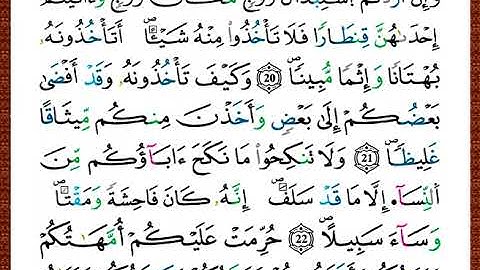 وَإِنْ أَرَدتُّمُ ٱسْتِبْدَالَ زَوْجٍ مَّكَانَ زَوْجٍ وَءَاتَيْتُمْ
إِحْدَىٰهُنَّ قِنطَارًا فَلَا تَأْخُذُوا۟ مِنْهُ شَيْـًٔا ۚ أَتَأْخُذُونَهُۥ
بُهْتَـٰنًا وَإِثْمًا مُّبِينًا (20) وَكَيْفَ تَأْخُذُونَهُۥ وَقَدْ أَفْضَىٰ
بَعْضُكُمْ إِلَىٰ بَعْضٍ وَأَخَذْنَ مِنكُم مِّيثَـٰقًا
غَلِيظًا (21) وَلَا تَنكِحُوا۟ مَا نَكَحَ ءَابَآؤُكُم مِّنَ
ٱلنِّسَآءِ إِلَّا مَا قَدْ سَلَفَ ۚ إِنَّهُۥ كَانَ فَـٰحِشَةً وَمَقْتًا
وَسَآءَ سَبِيلًا (22) حُرِّمَتْ عَلَيْكُمْ أُمَّهَـٰتُكُمْ